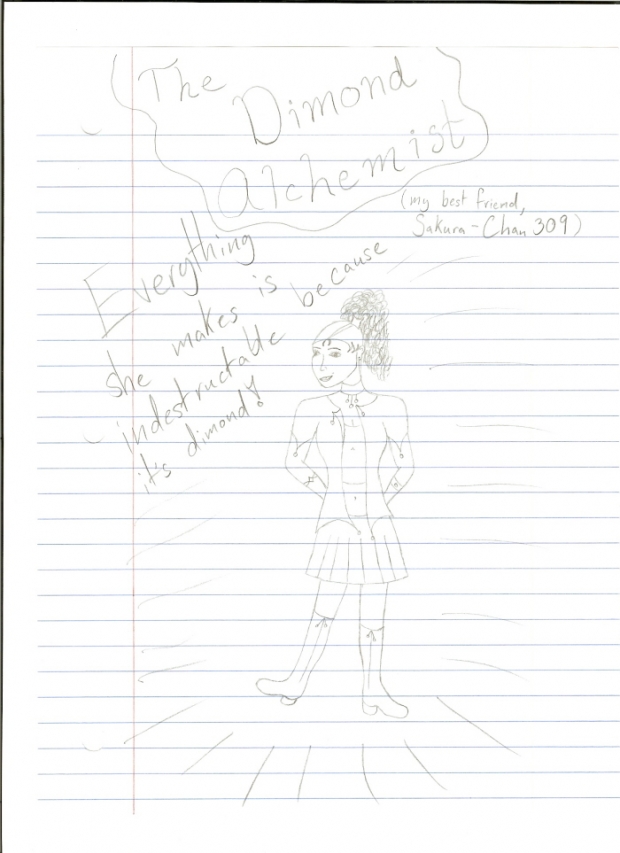 The
Dimond
Alchemist
(my best friend,
Sakura-Chan 309)
Everything
she makes is
indestructable because
it's dimond!